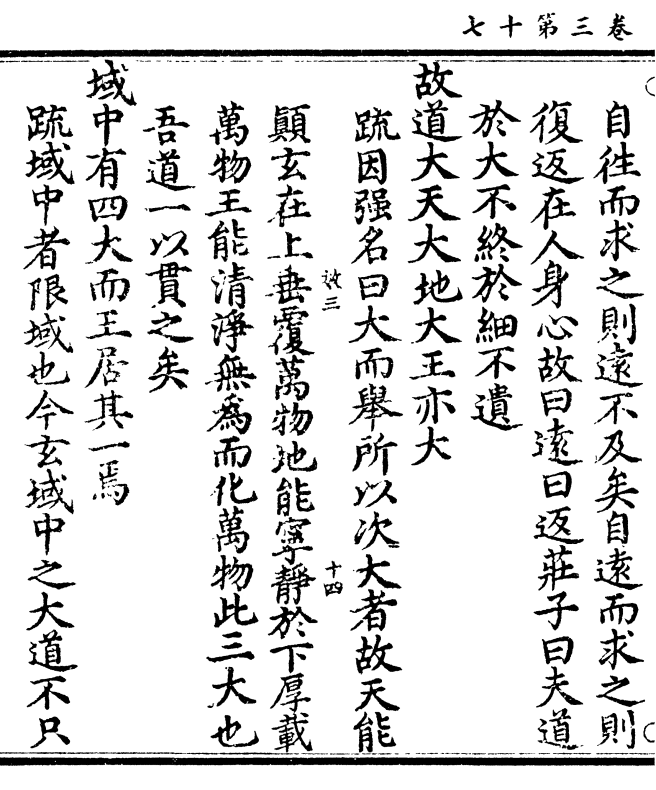 卷三第十七
自徃而求之則遠不及矣自遠而求之則
復返在人身心故曰遠曰返莊子曰夫道
於大不終於細不遺
故道大天大地大王亦大
疏因强名曰大而舉所以次大者故天能
三
十四
顯玄在上垂覆萬物地能寧靜於下厚載
萬物王能清淨無為而化萬物此三大也
吾道一以貫之矣
域中有四大而王居其一焉
疏域中者限域也今玄域中之大道不只